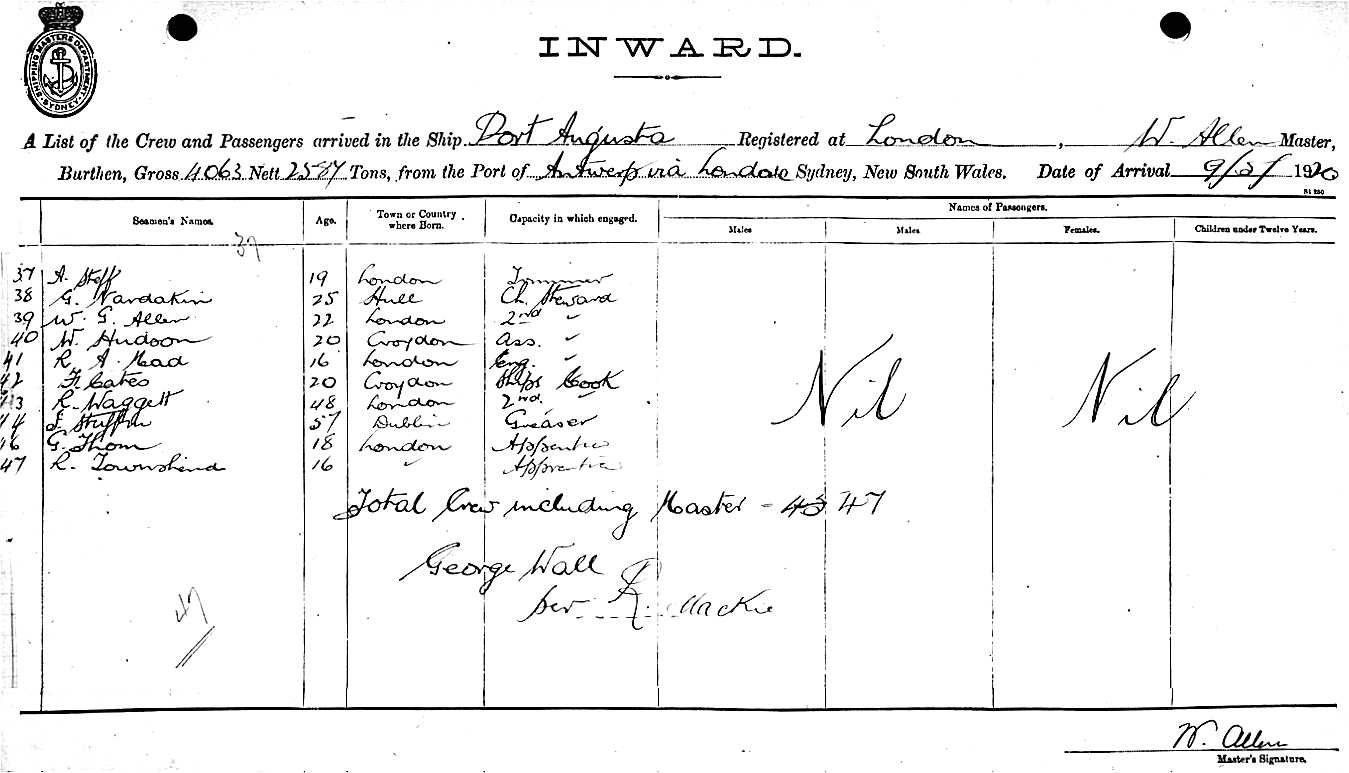 SHIPPING MASTERS DEPARTMENT SYDNEY
INWARD.
A List of the Crew and Passengers arrived in the Ship Port Augusta Registered at London, W. Allen Master,
Burthen, Gross 4063 Nett Tons, from the Port of Antwerp via London Sydney, New South Wales. Date of Arrival 1920
Seamen's Names. Age. Town or Country where Born. Capacity in which engaged. Names of Passengers.
Males Males Females. Children under Twelve Years.
37
37 A. 19 London Trimmer
38 G. 25 Hull Ch. Steward
39 W. G. Allen 22 London 2nd "
40 W. Hudson 20 Croydon Ass. "
41 R. A. Mead 16 London Eng. "
42 F. Cates 20 Croydon Ships Cook
43 R. Waggett 48 London 2nd "
44 57 Dublin Greaser
46 G. Thom 18 London Apprentice
47 R. Townshend 16 " Apprentice
Nil Nil
Total Crew including Master - 43 47
George Wall
per R. Mackie
47
W. Allen
Master's Signature.